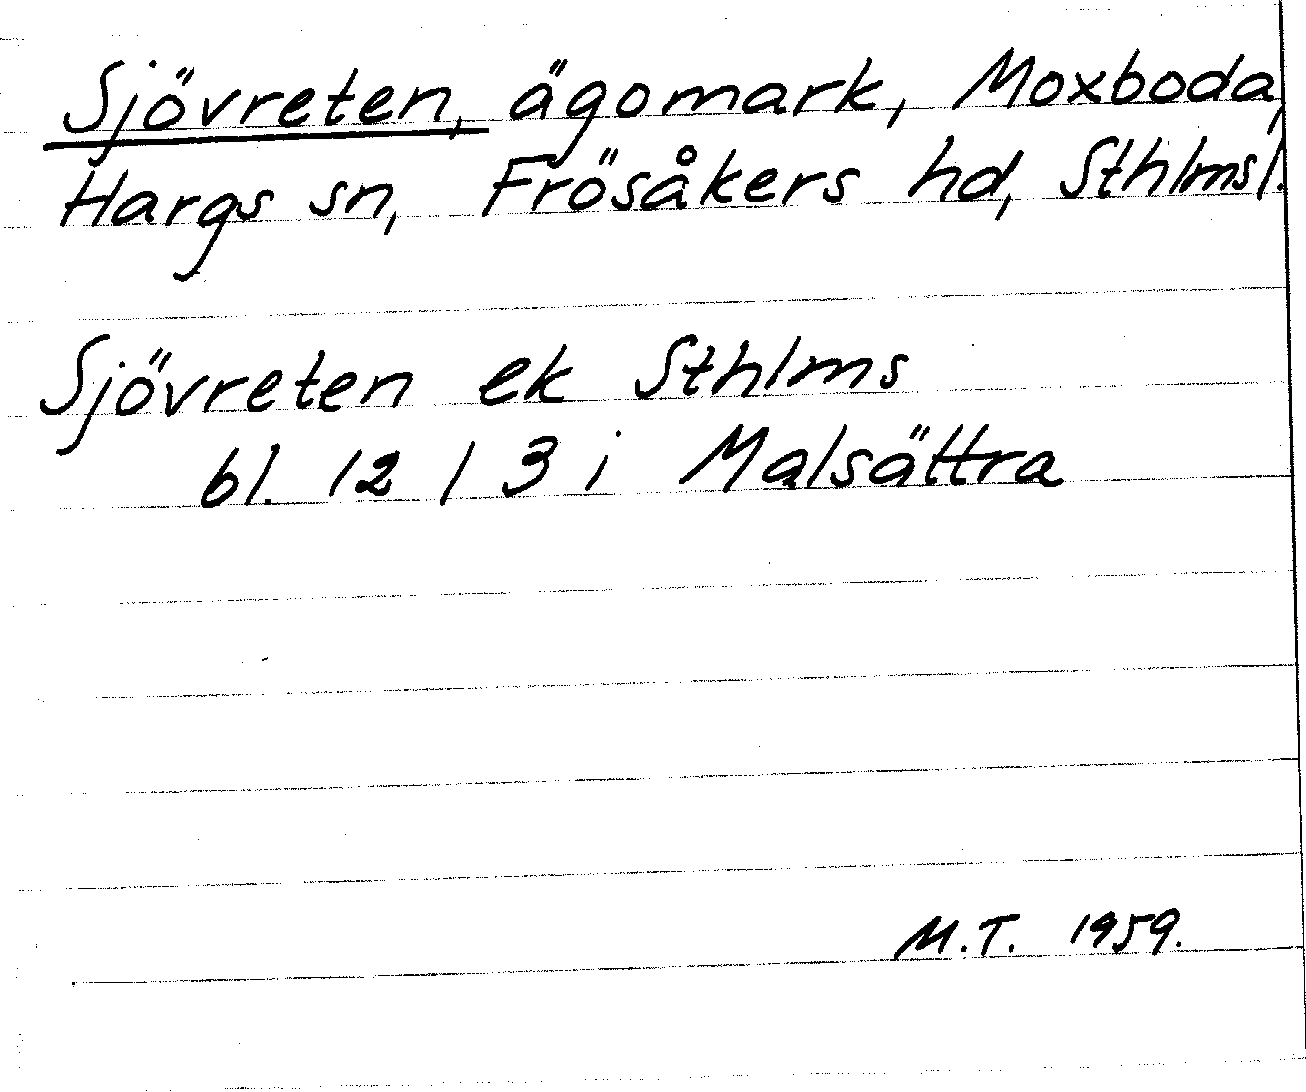 Sjövreten, ägomark, Moxboda,
Hargs sn, Frösåkers hd, Sthlms l.
Sjövreten ek Sthlms
bl. 12 / 3 i Malsättra
M.T. 1959.